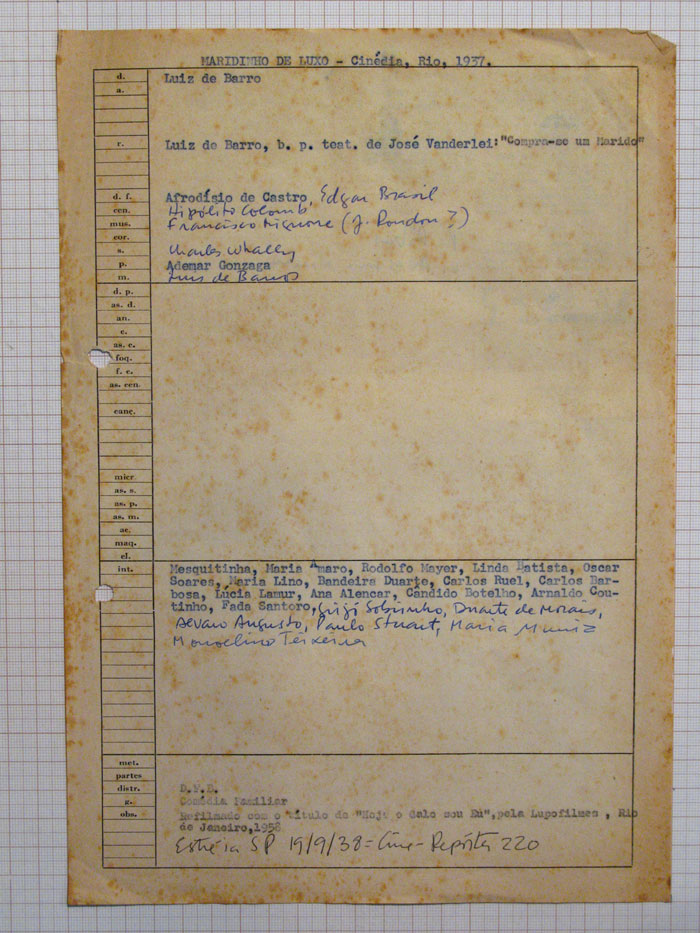 MARIDINHO DE LUXO - Cinédia, Rio, 1937.
d. Luiz de Barro
a.
r. Luiz de Barro, b. p. teat. de José Vanderlei: "Compra-se um Marido"
d. f. Afrodísio de Castro, Edgar Brasil
cen. Hipólito Colomb
mus. Francisco Mignone (J. Rondon?)
cor.
s. Charles Whally
p. Ademar Gonzaga
m. Luis de Barros
d. p.
as. d.
an.
c.
as. c.
foq.
f. c.
as. cen.
canç.
micr.
as. s.
as. p.
as. m.
ac.
maq.
el.
int. Mesquitinha, Maria Amaro, Rodolfo Mayer, Linda Batista, Oscar
Soares, Maria Lino, Bandeira Duarte, Carlos Ruel, Carlos Bar-
bosa, Lúcia Lamur, Ana Alencar, Candido Botelho, Arnaldo Cou-
tinho, Fada Santoro, Sobrinho, Duarte de Morais,
Alvaro Augusto, Paulo Stuart, Maria Muniz
Teixeira
met.
partes
distr. D.F.B.
g. Comédia Familiar
obs. Refilmado com o título de "Hoje o Galo sou Eu", pela Lupofilmes, Rio
de Janeiro, 1958
Estréia SP 19/9/38 = Cine-Repórter 220